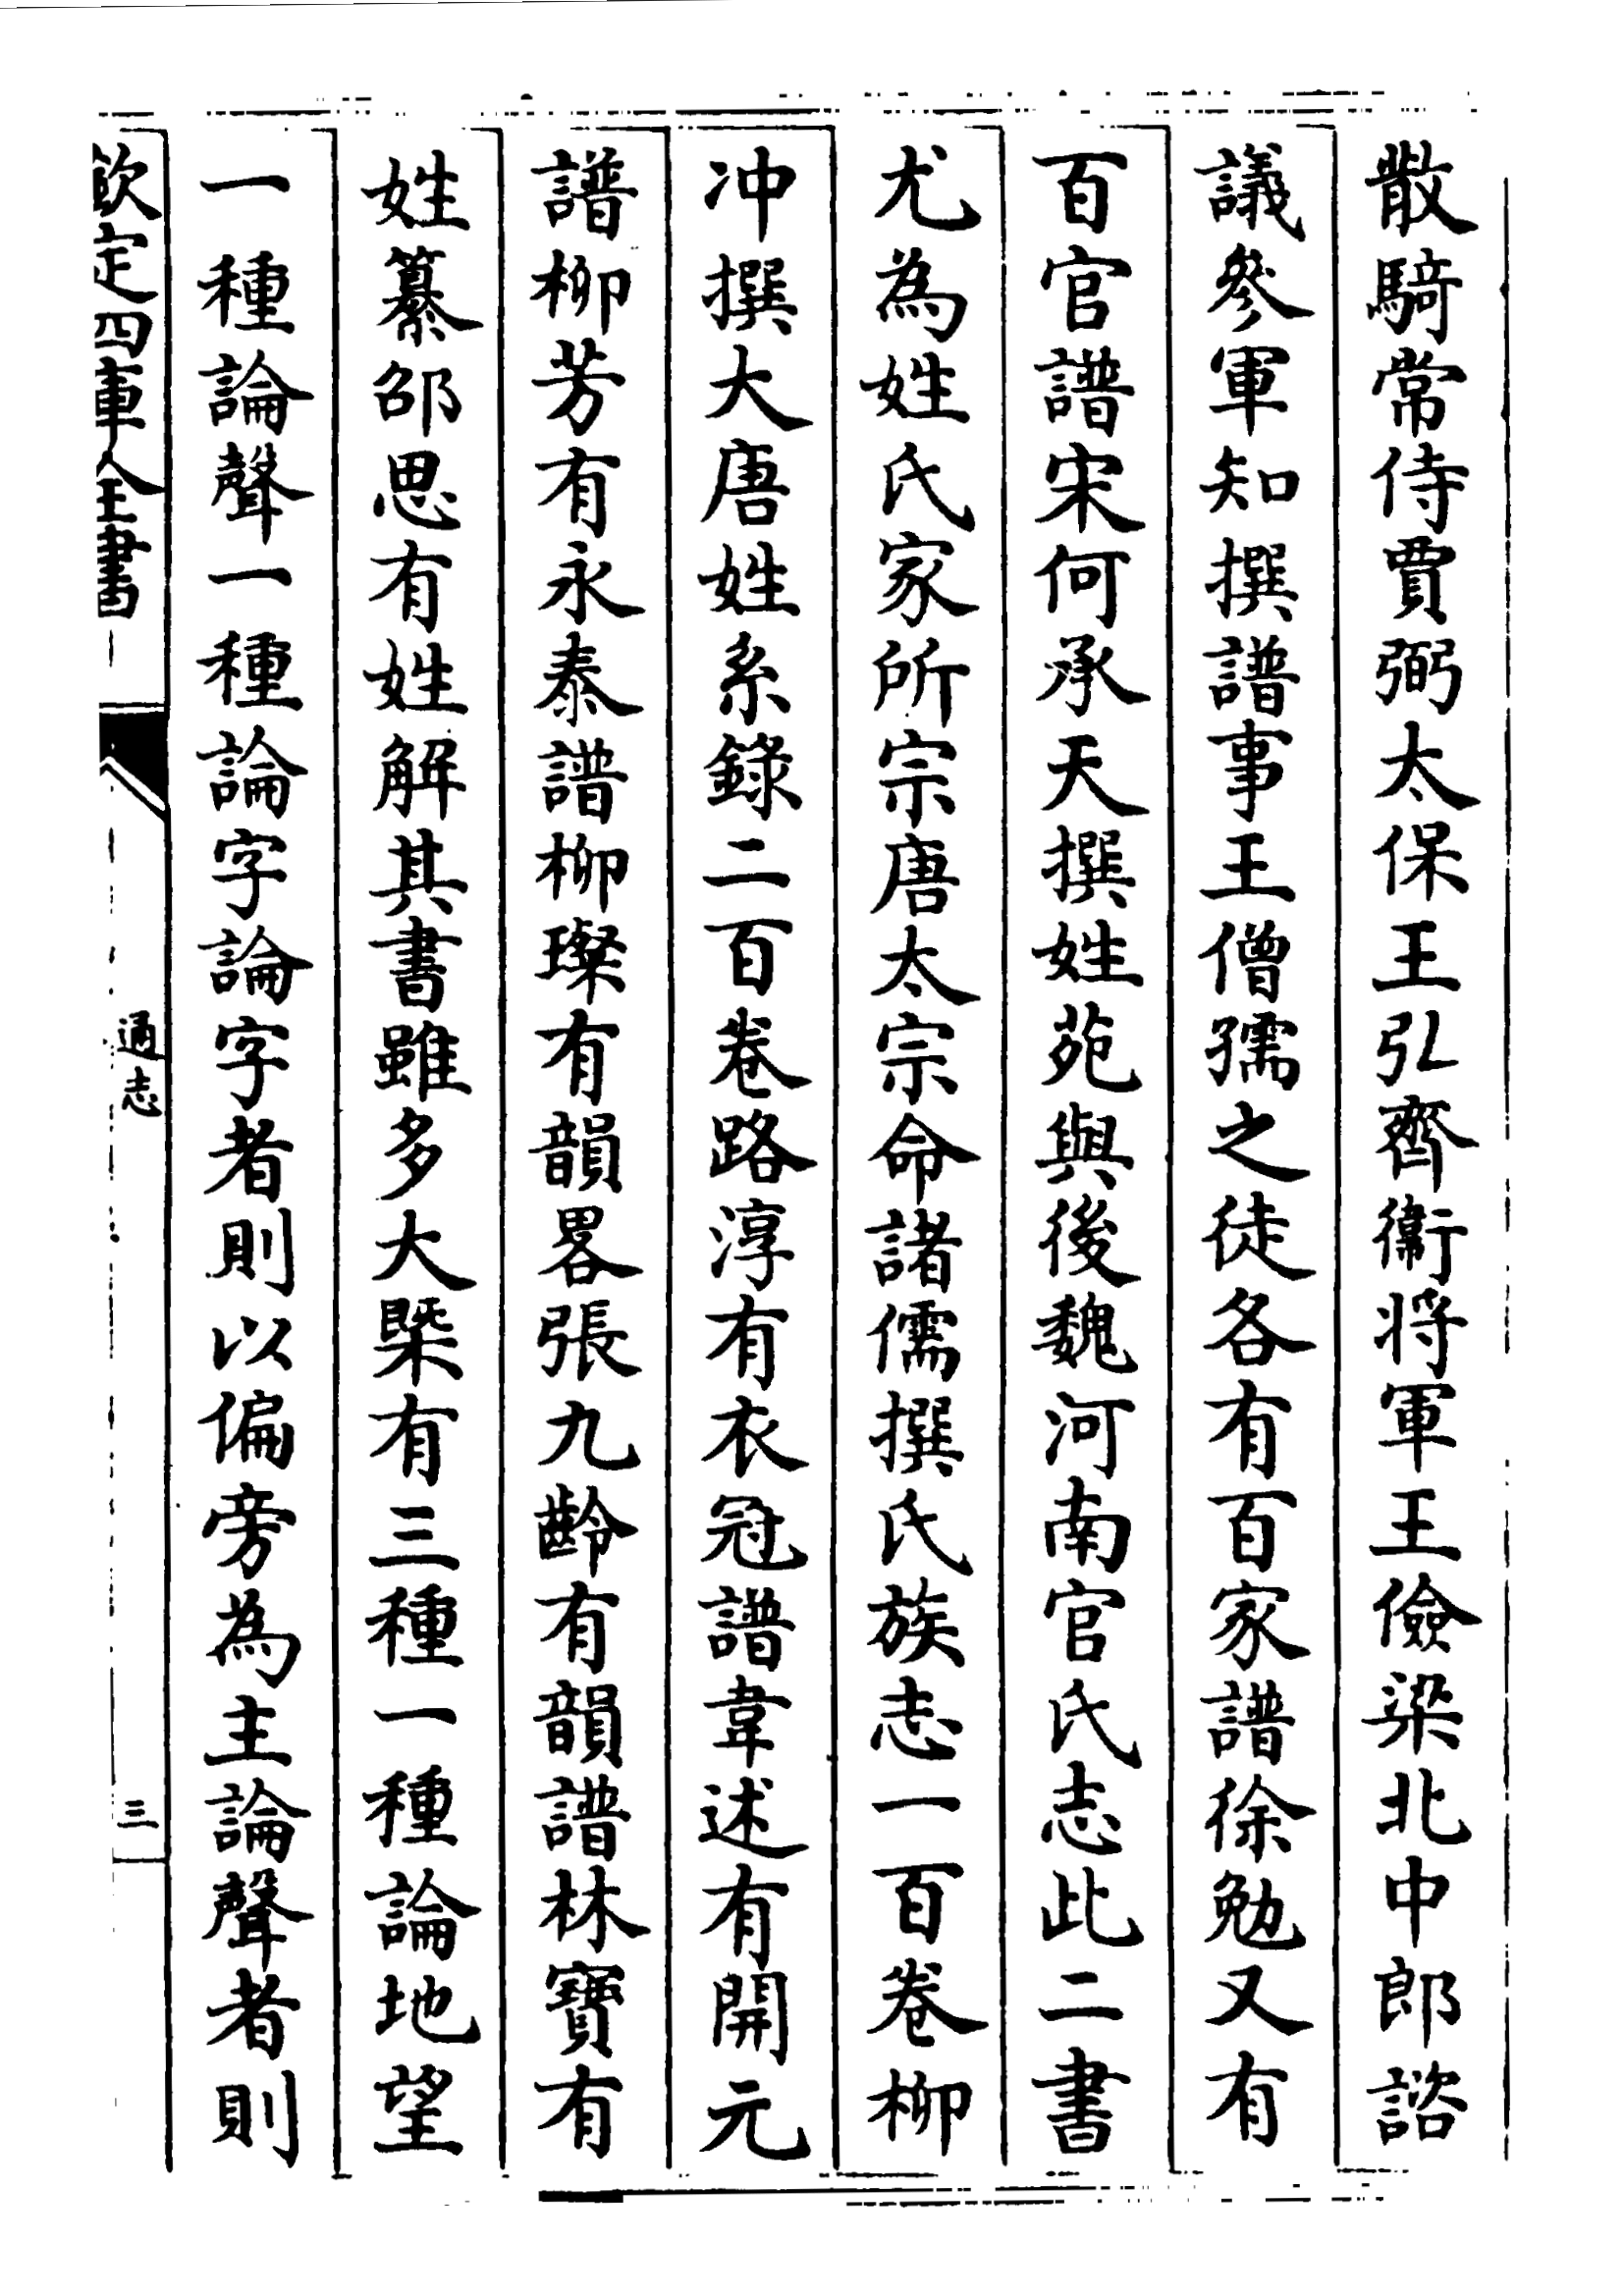 散騎常侍賈弼太保王弘齊衞將軍王儉梁北中郎諮
議參軍知撰譜事王僧孺之徒各有百家譜徐勉又有
百官譜宋何承天撰姓苑與後魏河南官氏志此二書
尤為姓氏家所宗唐太宗命諸儒撰氏族志一百卷柳
冲撰大唐姓系錄二百卷路淳有衣冠譜韋述有開元
譜柳芳有永泰譜柳璨有韻畧張九齡有韻譜林寶有
姓纂邵思有姓解其書雖多大槩有三種一種論地望
一種論聲一種論字論字者則以偏旁為主論聲者則
欽定四庫全書
通志
三